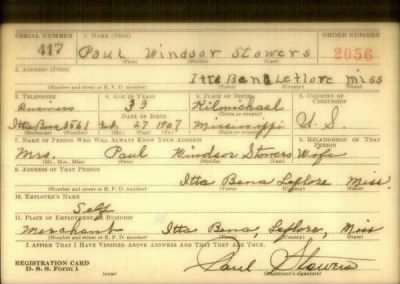 SERIAL NUMBER 1. NAME (Print) ORDER NUMBER
417 Paul Windsor Stowers 2056
(First) (Middle) (Last)
2. ADDRESS (Print)
Itta Bena Leflore Miss
(Number and street or R. F. D. number) (Town) (County) (State)
3. TELEPHONE 4. AGE IN YEARS 5. PLACE OF BIRTH 6. COUNTRY OF CITIZENSHIP
Business 33 Kilmichael
DATE OF BIRTH
Itta Bena 3561 27 1907 Mississippi U. S.
(Exchange) (Number) (Mo.) (Day) (Yr.) (State or country)
7. NAME OF PERSON WHO WILL ALWAYS KNOW YOUR ADDRESS 8. RELATIONSHIP OF THAT PERSON
Mrs. Paul Windsor Stowers Wife
(Mr., Mrs., Miss) (First) (Middle) (Last)
9. ADDRESS OF THAT PERSON
Itta Bena Leflore Miss.
(Number and street or R. F. D. number) (Town) (County) (State)
10. EMPLOYER'S NAME
Self
11. PLACE OF EMPLOYMENT OR BUSINESS
Merchant Itta Bena, Leflore, Miss
(Number and street or R. F. D. number) (Town) (County) (State)
I AFFIRM THAT I HAVE VERIFIED ABOVE ANSWERS AND THAT THEY ARE TRUE.
REGISTRATION CARD
D. S. S. Form 1 (over) Paul Stowers
(Registrant's signature)